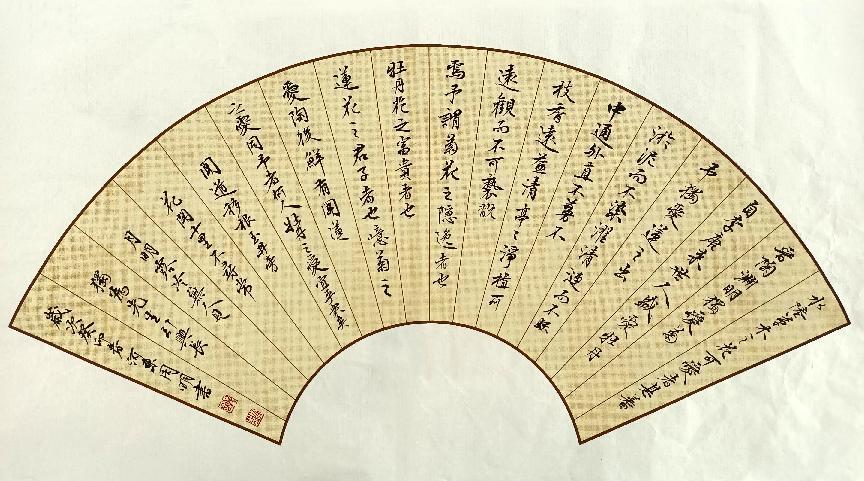 水陸草木之花可愛者甚蕃
晉陶淵明獨愛菊
自李唐来世人盛愛牡丹
予獨愛蓮之出
淤泥而不染濯清漣而不妖
中通外直不蔓不
枝香遠益清亭亭淨植可
遠觀而不可褻翫
焉予謂菊花之隱逸者也
牡丹花之富貴者也
蓮花之君子者也噫菊之
愛陶後鮮有聞蓮
之愛同予者何人牡丹之愛宜乎衆矣
聞道移根玉井旁
花開十里不尋常
月明露冷無人見
獨為先生引興長
歲次癸卯春 書